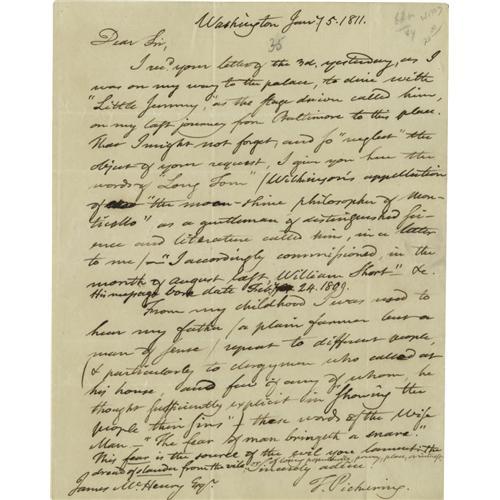 Washington Jany 5. 1811.
36
Dear Sir,
I recd. your letter of the 3d. yesterday, as I
was on my way to the palace, to dine with
"Little Jemmy," as the stage driver called him,
on my last journey from Baltimore to this place.
That I might not forget, and so "neglect" the
object of your request, I give you here the
words of "Long Tom" (Wilkinson's appellation
of "the moon-shine philosopher of Mon-
ticello" as a gentleman of distinguished sci-
ence and literature called him, in a letter
to me)—"I accordingly commissioned, in the
month of august last, William Short" &c.
His message bore date Feby 24. 1809.
From my childhood I was used to
hear my father (a plain farmer but a
man of sense) repeat to different people,
(& particularly to clergymen who called at
his house and few of any of whom he
thought sufficiently explicit in "shewing the
people their sins") these words of the Wise
Man—"The fear of man bringeth a snare."
This fear is the source of the evil you lament: the
dread of slander from the vile
Sincerely adieu
James McHenry Esqr.
T. Pickering.